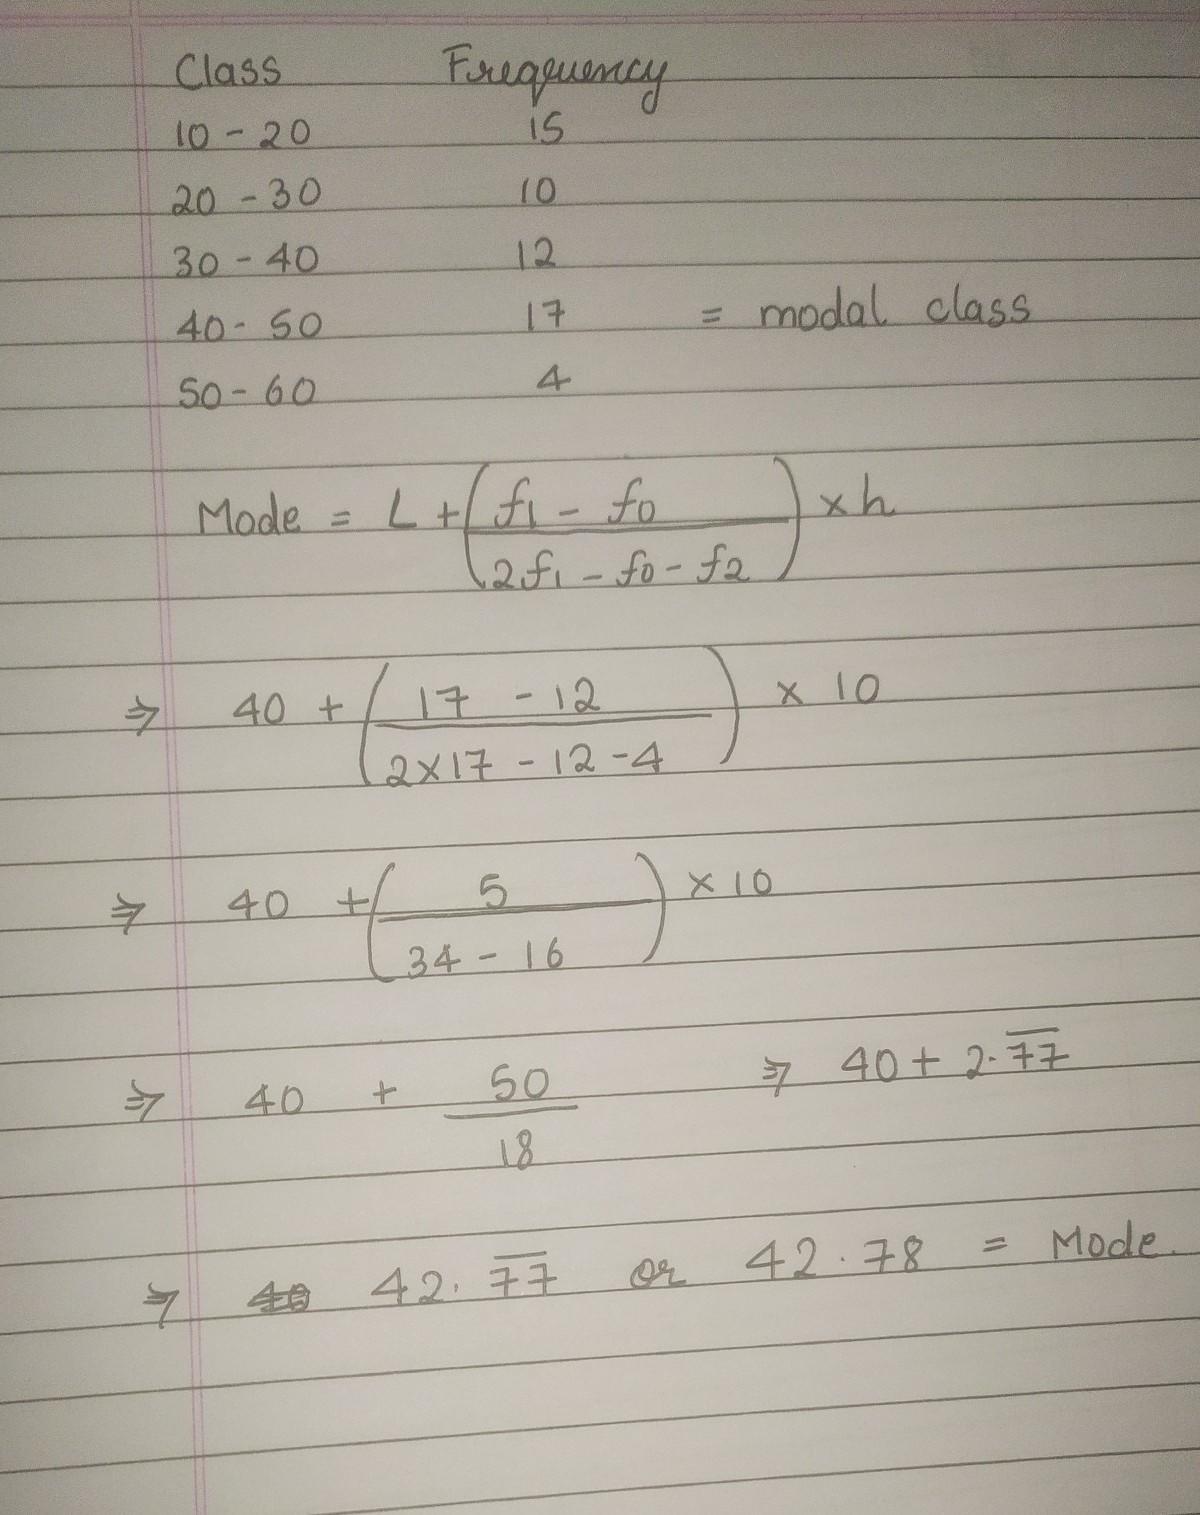 Class Frequency
10 - 20 15
20 - 30 10
30 - 40 12
40 - 50 17 = modal class
50 - 60 4
Mode = L + ( f1 - f0
2f1 - f0 - f2 ) × h
⇒ 40 + ( 17 - 12
2×17 - 12 - 4 ) × 10
⇒ 40 + ( 5
34 - 16 ) × 10
⇒ 40 + 50
18 ⇒ 40 + 2.7̅7̅
⇒ 42.7̅7̅ or 42.78 = Mode.